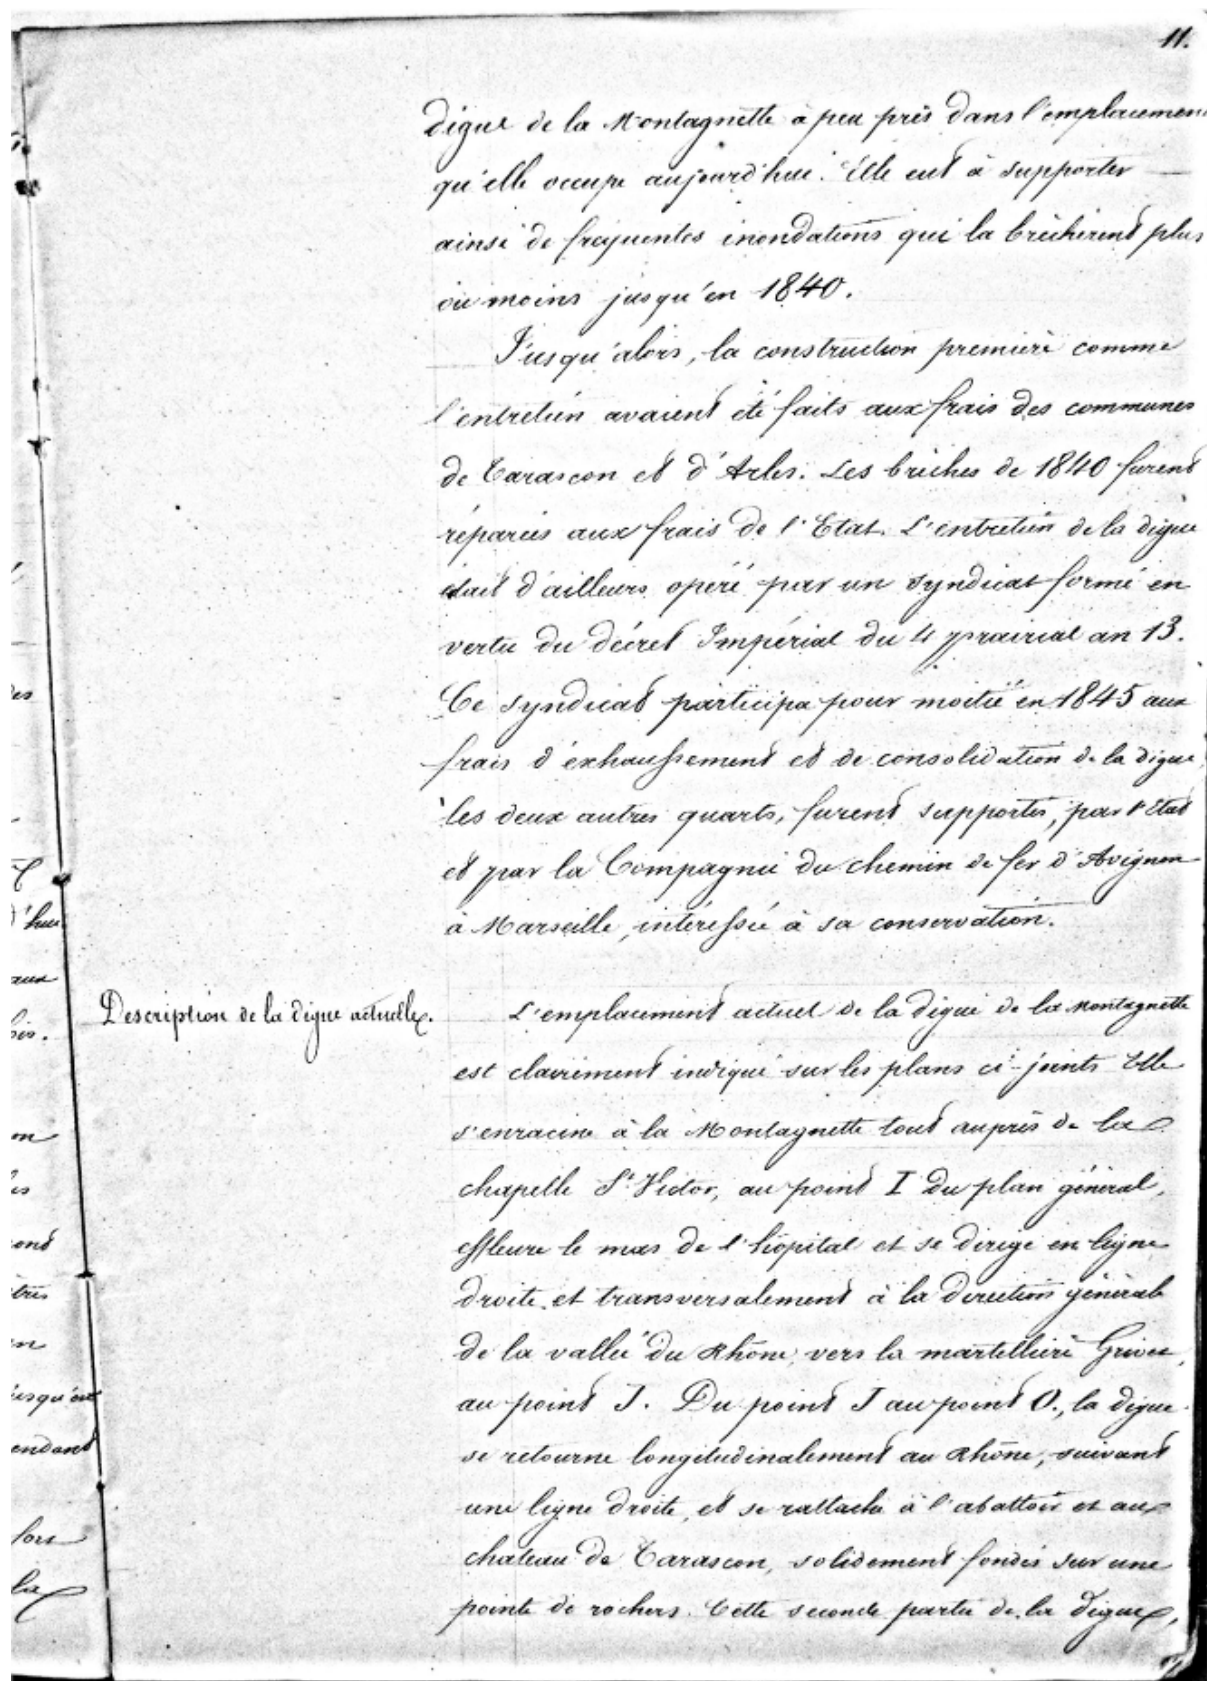 11.
digue de la Montagnette à peu près dans l'emplacement
qu'elle occupe aujourd'hui. Elle eut à supporter
ainsi de fréquentes inondations qui la bréchèrent plus
ou moins jusqu'en 1840.
Jusqu'alors, la construction première comme
l'entretien avaient été faits aux frais des communes
de Tarascon et d'Arles. Les brèches de 1840 furent
réparées aux frais de l'Etat. L'entretien de la digue
était d'ailleurs opéré par un syndicat formé en
vertu du décret Impérial du 4 prairial an 13.
Ce syndicat participa pour moitié en 1845 aux
frais d'exhaussement et de consolidation de la digue,
les deux autres quarts, furent supportés, par l'Etat
et par la Compagnie du chemin de fer d'Avignon
à Marseille, intéressée à sa conservation.
Description de la digue actuelle.
L'emplacement actuel de la digue de la Montagnette
est clairement indiqué sur les plans ci-joints Elle
s'enracine à la Montagnette tout auprès de la
chapelle St Victor, au point I du plan général,
effleure le mas de l'hôpital et se dirige en ligne
droite et transversalement à la direction générale
de la vallée du Rhône, vers la martellière
au point J. Du point J au point O., la digue
se retourne longitudinalement au Rhône, suivant
une ligne droite, et se rattache à l'abattoir et au
chateau de Tarascon, solidement fondés sur une
pointe de rochers. Cette seconde partie de la digue,
d'hui
aux
on
ond
jusqu'en
endant
fort
la